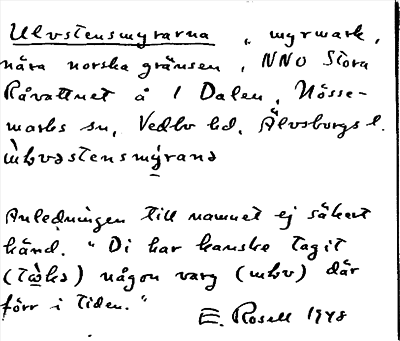 Ulvstensmyrarna, myrmark,
nära norska gränsen, NNO Stora
Råvattnet å 1 Dalen, Nösse-
marks sn, Vedbo hd, Älvsborgs l.

Anledningen till namnet ej säkert
känd. "Di har kanske tagit
någon varg där
förr i tiden."
E. Rosell 1948